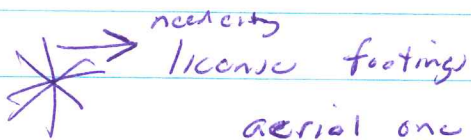 need city
license footings
aerial one